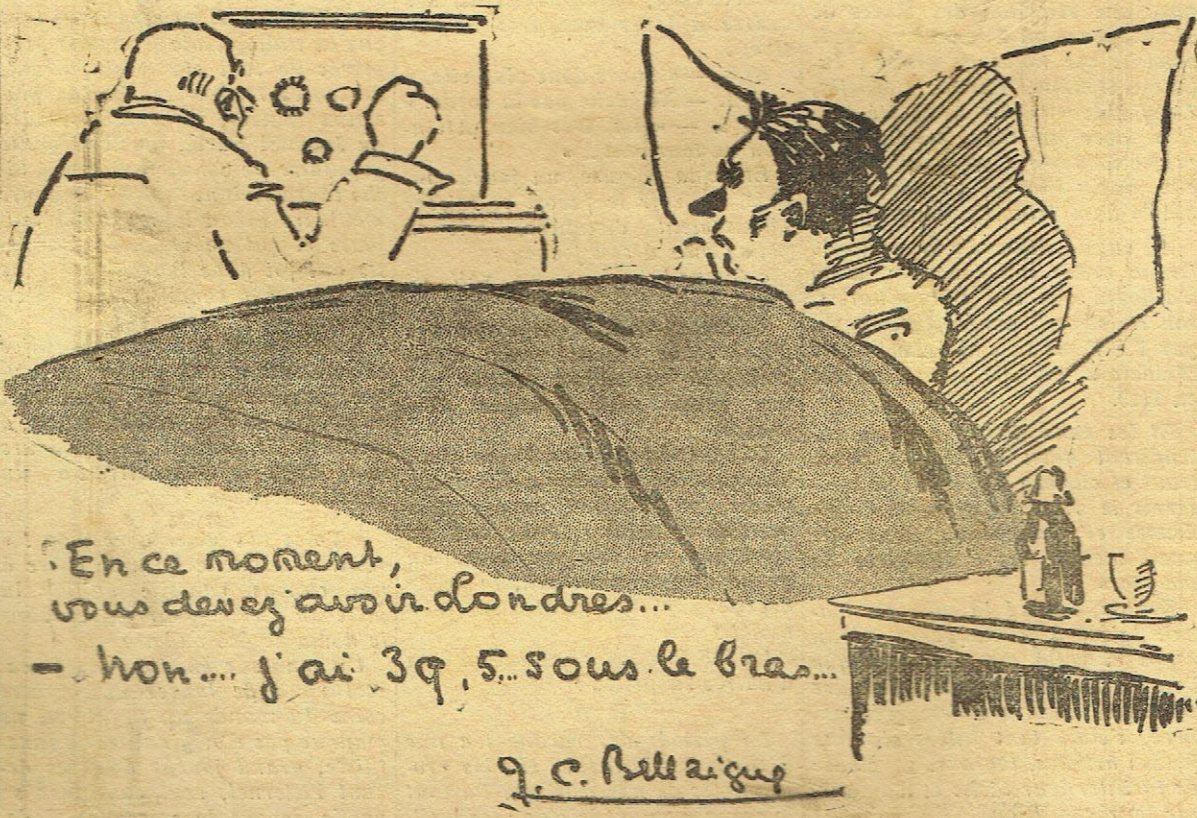 - En ce moment,
vous devez avoir Londres...
- Non... j'ai 39,5... sous le bras...
J. C. Bellaigue